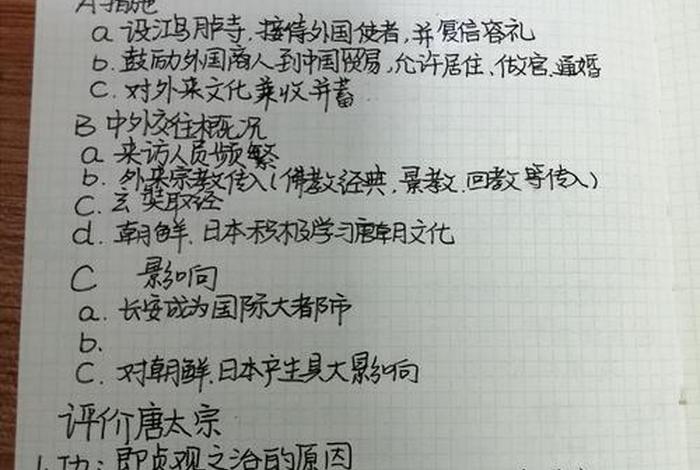 A 措施
a. 设鸿胪寺,接待外国使者,并复信容礼
b. 鼓励外国商人到中国贸易,允许居住、做官、通婚
c. 对外来文化兼收并蓄
B 中外交往概况
a. 来访人员频繁
b. 外来宗教传入(佛教经典,景教.回教等传入)
c. 玄奘取经
d. 朝鲜.日本积极学习唐朝文化
C 影响
a. 长安成为国际大都市
b.
c. 对朝鲜.日本产生具大影响
评价唐太宗
1.功:即贞观之治的原因